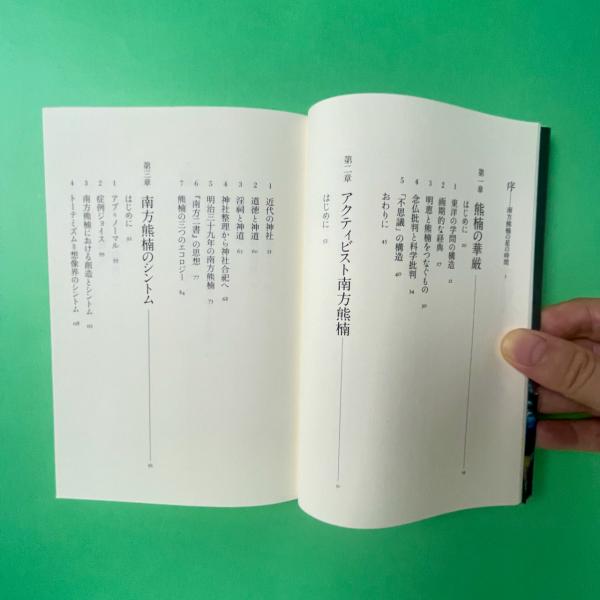 序――南方熊楠の星の時間 1
第一章 熊楠の華厳
はじめに
1 東洋の学問の構造
2 画期的な経典 17
3 明恵と熊楠をつなぐもの 30
4 念仏批判と科学批判 34
5 「不思議」の構造 40
おわりに 45
第二章 アクティビスト南方熊楠
はじめに
1 近代の神社
2 道徳と神道 60
3 淫祠と神道 61
4 神社整理から神社合祀へ 68
5 明治三十九年の南方熊楠 73
6 「南方二書」の思想 77
7 熊楠の三つのエコロジー 84
第三章 南方熊楠のシントム
はじめに
1 アブ・ノーマル
2 症例ジョイス
3 南方熊楠における創造とシントム
4 トーテミズム=想像界のシントム